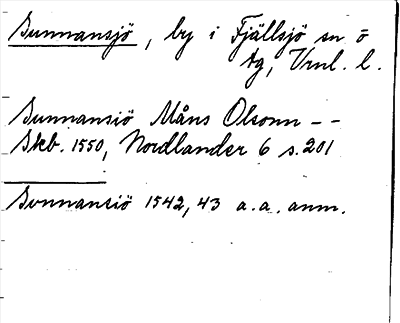 Sunnansjö, by i Fjällsjö sn ö
tg, Vrnl. l.
Sunnansiö Måns Olsonn - -
Skb. 1550, Nordlander 6 s. 201
Sonnansiö 1542, 43 a. a. anm.